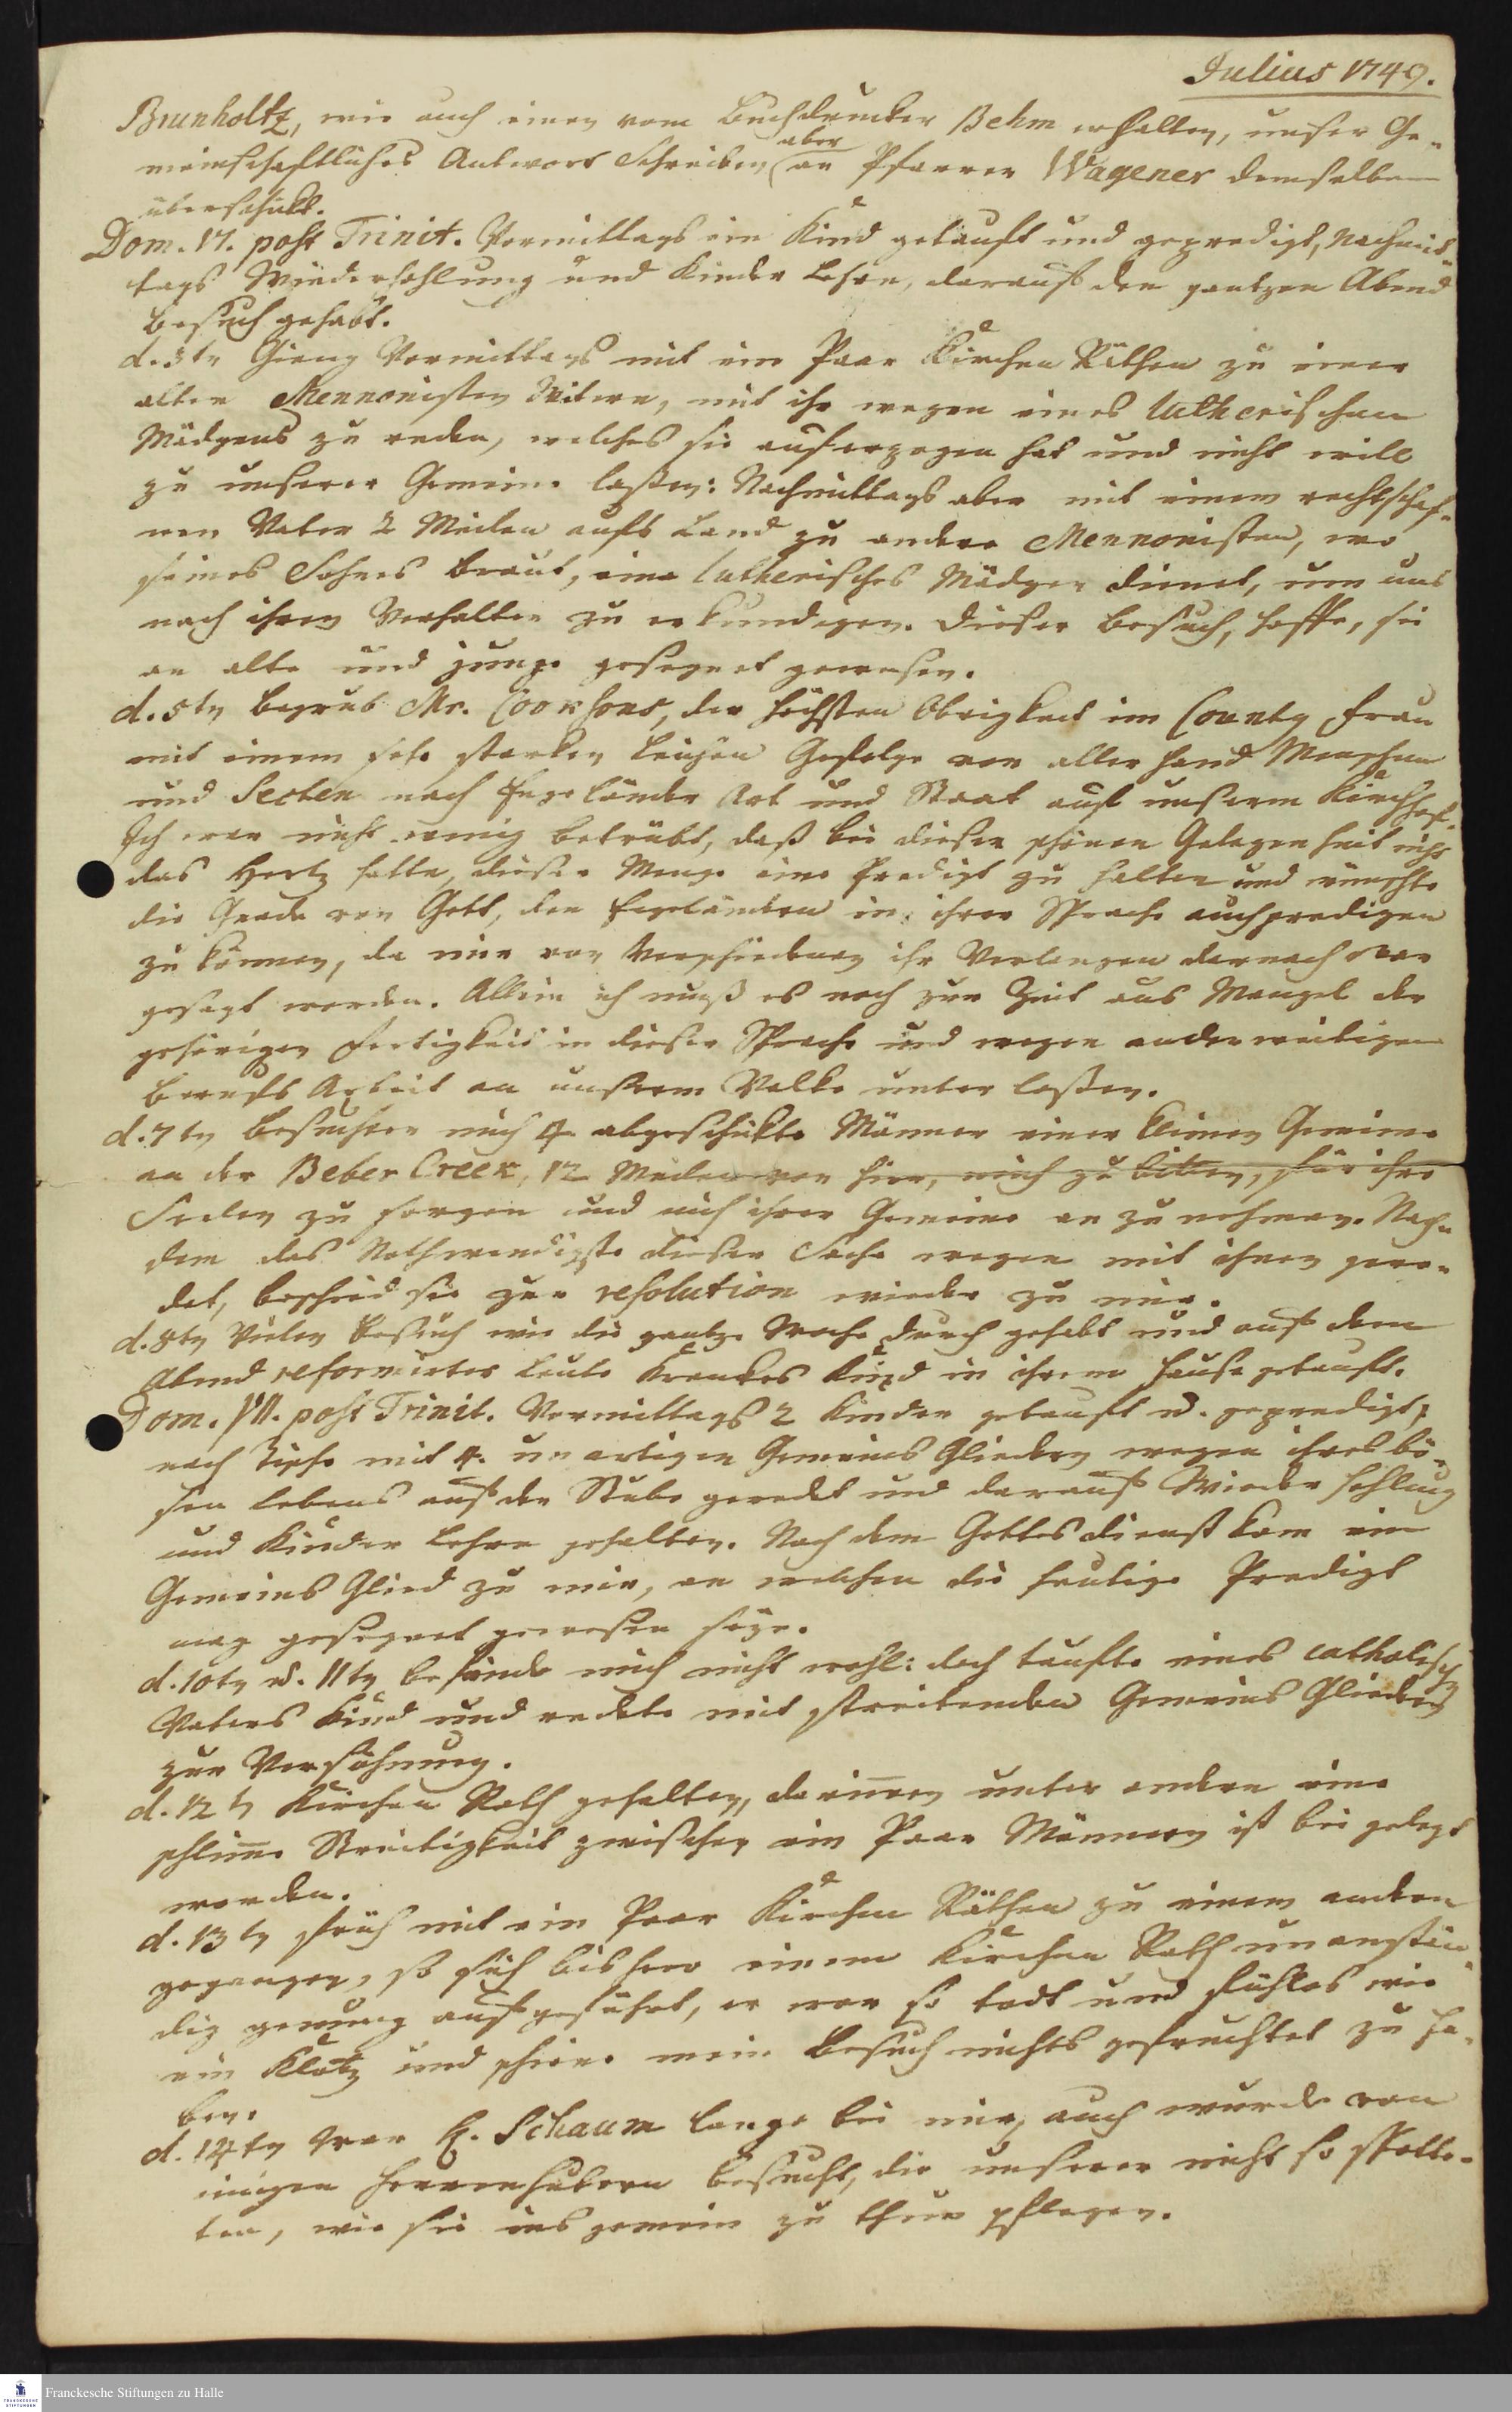 Julius 1749.
Brunholtz, wie auch einen vom Buchdrucker Behm erhalten, unser Ge-
meinschaftliches Antwort Schreiben aber an Pfarrer Wagener demselben
überschickt.
Dom. VI. post Trinit. Vormittags ein Kind getauft und gepredigt, Nachmit-
tags Wiederhohlung und Kinder Lehre, darauf den gantzen Abend
Besuch gehabt.
d. 3tn Gieng Vormittags mit ein Paar Kirchen Räthen zu einer
alten Mennonisten Witwe, mit ihr wegen eines lutherischen
Mädgens zu reden, welches sie auferzogen hat und nicht will
zu unserer Gemeine laßen: Nachmittags aber mit einem rechtschaf-
nen Vater 2 Meilen aufs Land zu andern Mennonisten, wo
seines Sohnes Braut, eine lutherisches Mädgen dienet, um uns
nach ihrem Verhalten zu erkundigen. Dieser Besuch, hoffe, sei
an alte und junge gesegnet gewesen.
d. 5tn Begrub Mr. Cooksons, der höchsten Obrigkeit im County Frau
mit einem sehr starken Leichen Gefolge von aller hand Menschen
und Secten nach Engeländer Art und Staat auf unserm Kirchhof.
Ich war nicht wenig betrübt, daß bei dieser schönen Gelegenheit nicht
das Hertz hatte, dieser Menge eine Predigt zu halten und wünschte
die Gnade von Gott, den Engeländern in ihrer Sprache auch predigen
zu können, da mir von Verschiedenen ihr Verlangen darnach war
gesagt worden. Allein ich muß es noch zur Zeit aus Mangel der
gehörigen Fertigkeit in dieser Sprache und wegen anderweitigen
Berufs Arbeit an unserem Volke unter laßen.
d. 7tn Besuchten mich 4 abgeschickte Männer einer kleinen Gemeine
an der Beber Creek, 12 Meilen von hier, mich zu bitten, für ihre
Seelen zu sorgen und mich ihrer Gemeine an zu nehmen. Nach-
dem das Nothwendigste dieser Sache wegen mit ihnen gere-
det, beschied sie zur resolution wieder zu mir.
d. 8tn Vielen Besuch wie die gantze Woche durch gehabt und auf dem
Abend reformirter Leute kranckes Kind in ihrem Hause getauft.
Dom. VII. post Trinit. Vormittags 2 Kinder getauft u. gepredigt,
nach Tische mit 4. unartigen Gemeins Gliedern wegen ihres bö-
sen Lebens auf der Stube geredet und darauf Wiederhohlung
und Kinder Lehre gehalten. Nach dem Gottesdienst kam ein
Gemeins Glied zu mir, an welchem die heutige Predigt
mag gesegnet gewesen seyn.
d. 10tn u. 11tn befande mich nicht wohl: doch taufte eines catholischn
Vaters Kind und redete mit streitenden Gemeins Gliedern
zur Versöhnung.
d. 12tn Kirchen Rath gehalten, darinnen unter andern eine
schlim̅e Streitigkeit zwischen ein Paar Männern ist bei gelegt
worden.
d. 13tn früh mit ein Paar Kirchen Räthen zu einem andern
gegangen, so sich bishero einem Kirchen Rath unanstän-
dig genung aufgeführt, er war so todt und fühlos wie
ein Klotz und schiene mein Besuch nichts gefruchtet zu ha-
ben.
d. 14tn War H. Schaum lange bei mir, auch wurde von
einigen Herrenhutern besucht, die unserer nicht so spotte-
ten, wie sie ins gemein zu thun pflegen.
Franckesche Stiftungen zu Halle